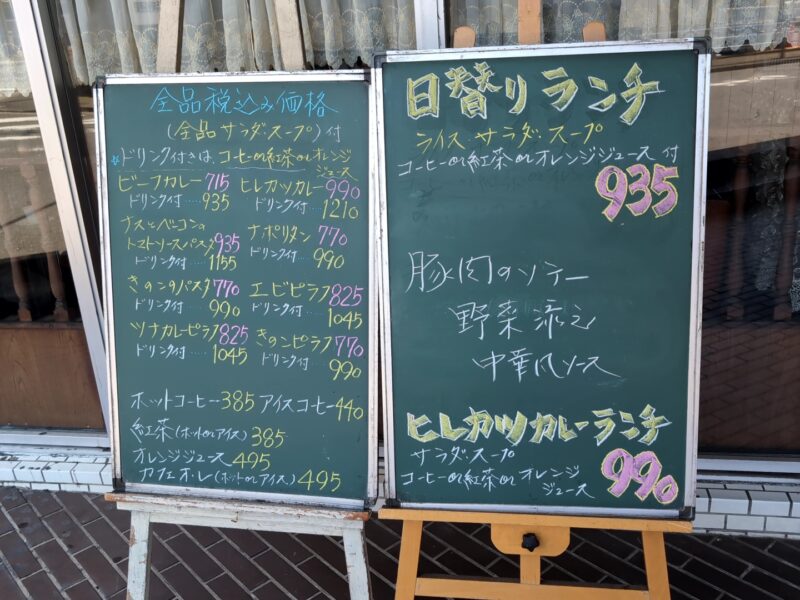 全品税込み価格
(全品サラダ・スープ)付
☆ドリンク付きは、コーヒーor紅茶orオレンジ
ジュース
ビーフカレー 715
ドリンク付 ‥‥ 935
ヒレカツカレー 990
ドリンク付 ‥‥ 1210
ナスとベーコンの
トマトソースパスタ 935
ドリンク付 ‥‥ 1155
ナポリタン 770
ドリンク付 ‥‥ 990
きのこのパスタ 770
ドリンク付 ‥‥ 990
エビピラフ 825
ドリンク付 ‥‥ 1045
ツナカレーピラフ 825
ドリンク付 ‥‥ 1045
きのこピラフ 770
ドリンク付 ‥‥ 990
ホットコーヒー 385
アイスコーヒー 440
紅茶(ホットorアイス) 385
オレンジジュース 495
カフェオ・レ(ホットorアイス) 495
日替りランチ
ライス サラダ・スープ
コーヒーor紅茶orオレンジジュース 付
935
豚肉のソテー
野菜添え
中華風ソース
ヒレカツカレーランチ
サラダ・スープ
コーヒーor紅茶orオレンジ
ジュース
990